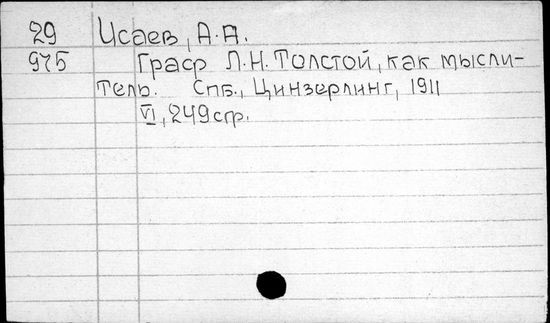 29 Исаев, А.А.
975 Граф Л.Н. Толстой, как мысли-
тель. Спб., Цинзерлинг, 1911
VI, 249 стр.